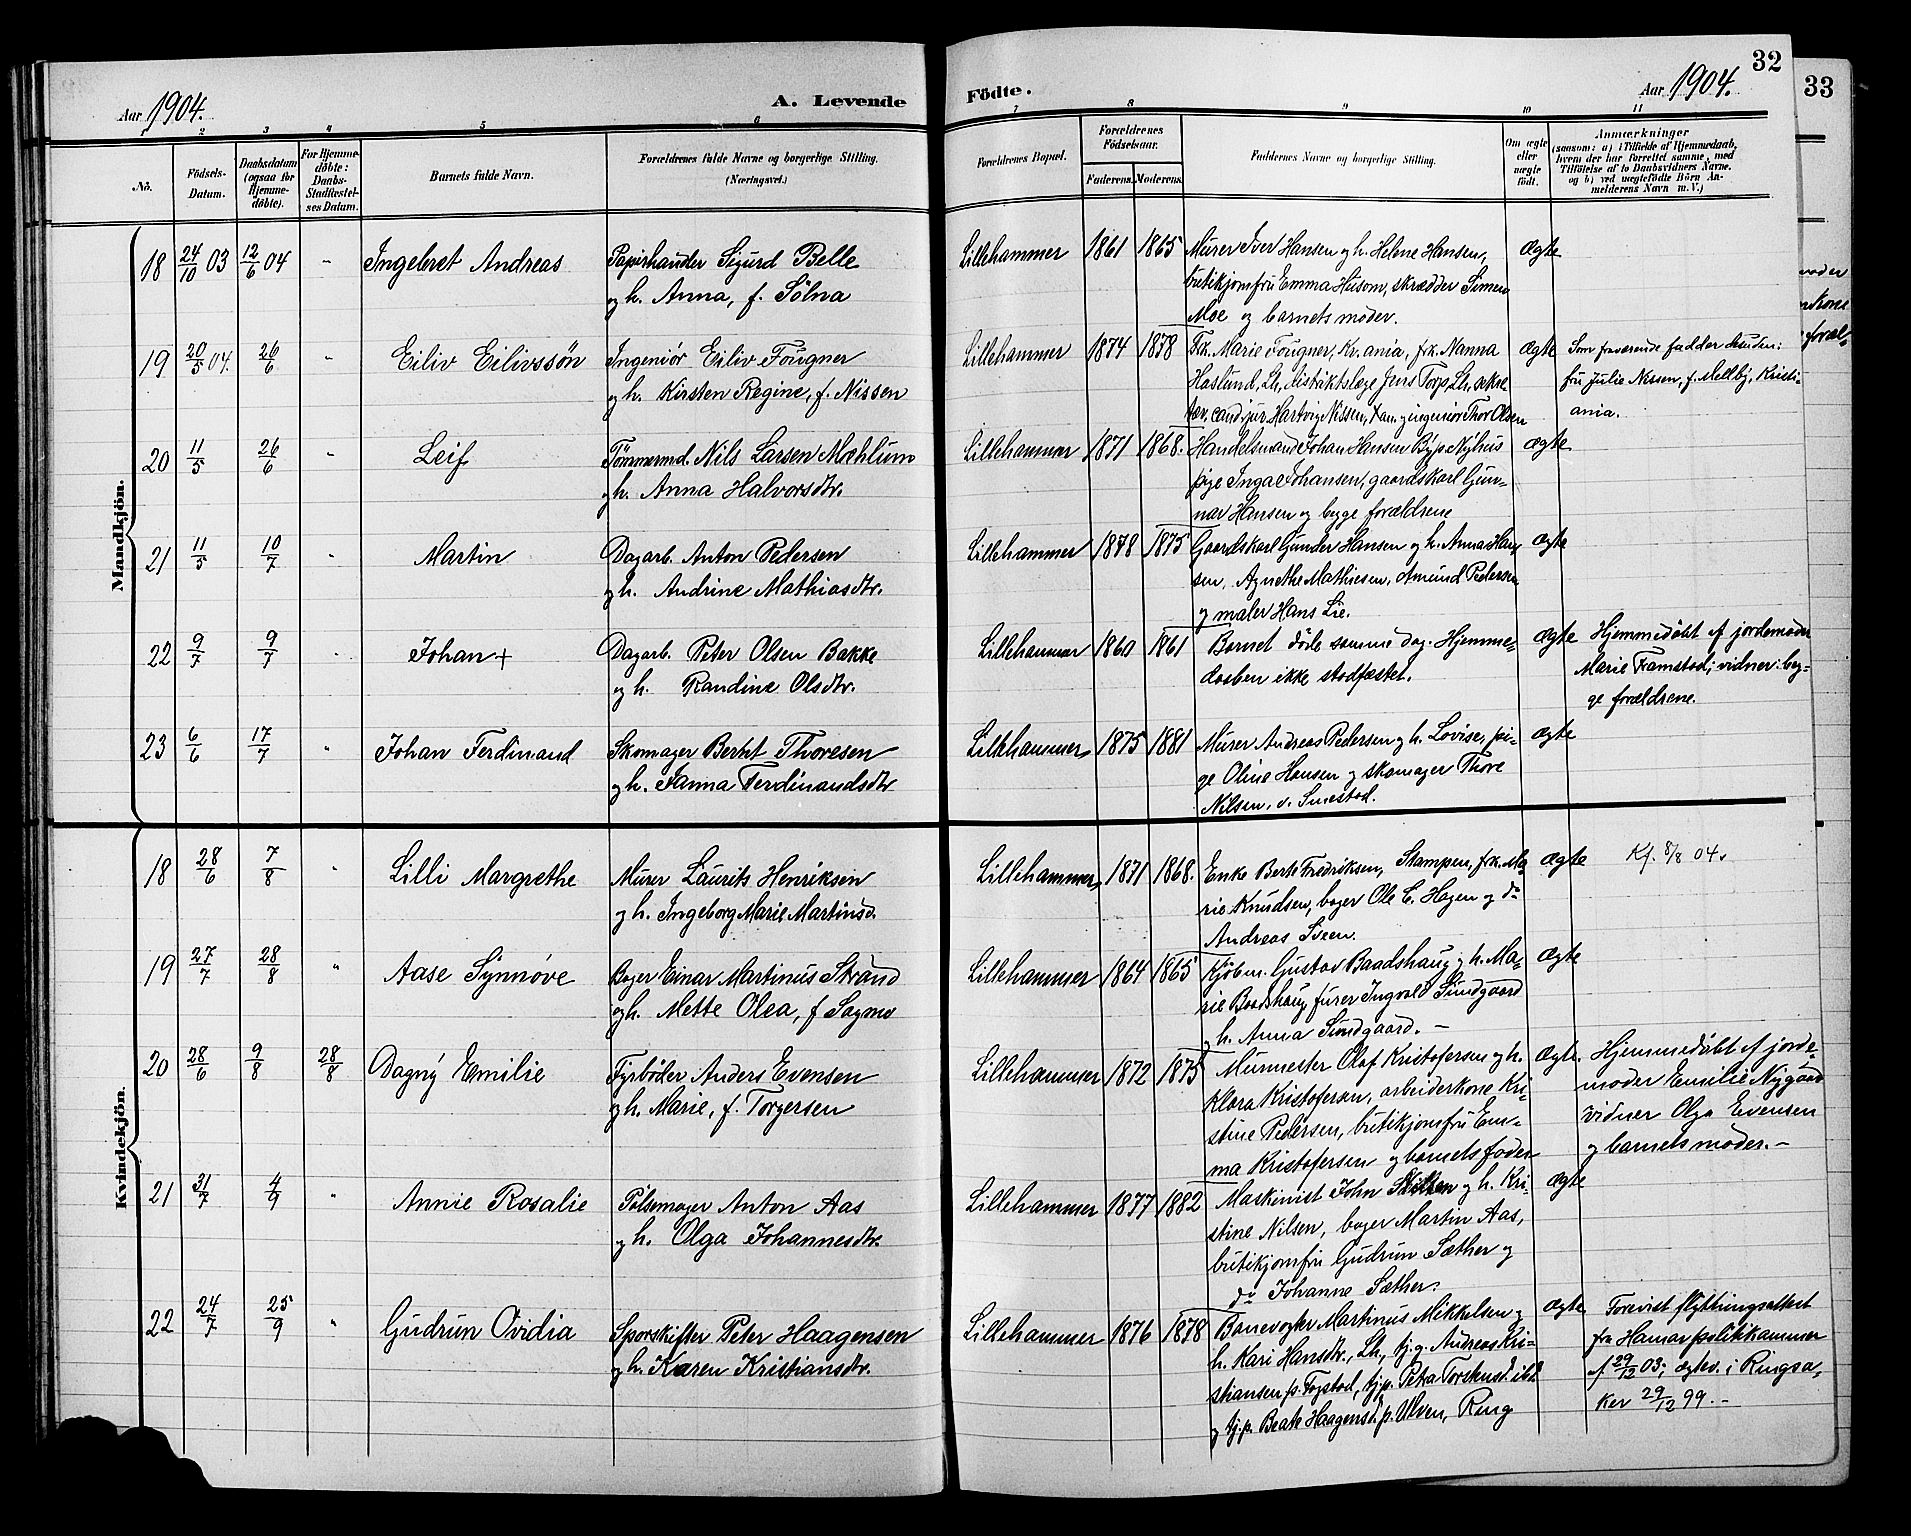 Aar 1904. A. Levende Födte. Aar 1904. 32
33
1 2 3 4 5 6 7 8 9 10 11
No.
Födsels-Datum.
Daabsdatum (ogsaa för Hjemmedöbte).
For Hjemmedöbte: Daabs-Stadfæstelses Datum.
Barnets fulde Navn.
Forældrenes fulde Navne og borgerlige Stilling. (Næringsvei.)
Forældrenes Bopæl.
Forældrenes Födselsaar.
Faderens. Moderens.
Faddernes Navne og borgerlige Stilling.
Om ægte eller uægte födt.
Anmærkninger
(saasom: a) i Tilfælde af Hjemmedaab, hvem der har forrettet samme, med Tilföielse af to Daabsvidners Navne, og b) ved uægtefödte Börn Anmelderens Navn m. V.)
Mandkjön.
18 24/10 03 12/6 04 - Ingebret Andreas
Papirhandler Sigurd Belle
og h. Anna, f. Sölna
Lillehammer 1861 1865
Murer Iver Hansen og h. Helene Hansen,
butikjomfru Emma Husom, skrædder Simen
Moe og barnets moder.
ægte
19 20/5 04. 26/6 " Eiliv Eilivssön
Ingeniör Eiliv Fougner
og h. Kirsten Regine, f. Nissen
Lillehammer 1874 1878
Frk. Marie Fougner, Kr.ania, frk. Nanna
Haslund, Lh, distriktslæge Jens Torp, Lh, sekre
tær, cand. jur. Hartvig Nissen, Kania og ingeniör Thor Olsen
ægte
Som fraværende fadder
fru Julie Nissen, f. Mellbÿ, Kristi-
ania.
20 11/5 26/6 " Leif
Tömmermd. Nils Larsen Mæhlum
og h. Anna Halvorsdtr.
Lillehammer 1871 1868.
Handelsmand Johan Hansen Bÿ p. Nÿhus
pige Inga Johansen, gaardskarl Gun-
nar Hansen og begge forældrene
ægte
21 11/5 10/7 " Martin
Dagarb. Anton Pedersen
og h. Andrine Mathiasdtr.
Lillehammer 1878 1875
Gaardskarl Gunder Hansen og h. Anna Han
sen, Agnethe Mathiesen, Amund Pedersen
og maler Hans Lie.
ægte
22 9/7 9/7 " Johan +
Dagarb. Peter Olsen Bakke
og h. Randine Olsdtr.
Lillehammer 1860 1861
Barnet döde samme dag. Hjemme-
daaben ikke stadfæstet.
ægte
Hjemmedöbt af jordemoder
Marie Framstad; vidner: beg-
ge forældrene.
23 6/6 17/7 " Johan Ferdinand
Skomager Bernt Thoresen
og h. Janna Ferdinandsdtr
Lillehammer 1875 1881
Murer Andreas Pedersen og h. Lovise, pi-
ge Oline Hansen og skomager Thore
Nilsen, v. Smestad.
ægte
Kvindekjön.
18 28/6 7/8 " Lilli Margrethe
Murer Laurits Henriksen
og h. Ingeborg Marie Martinsd.
Lillehammer 1871 1868.
Enke Berte Fredriksen, Stampen, frk. Ma
rie Knudsen, bager Ole C. Hagen og do
Andreas Sveen.
ægte
Kf. 8/8 04.
19 27/7 28/8 " Aase Synnöve
Bager Einar Martinus Strand
og h. Mette Olea, f Sagmo
Lillehammer 1864 1865
Kjöbm. Gustav Baadshaug og h. Ma-
rie Baadshaug, furer Ingvald Sundgaard
og h. Anna Sundgaard. -
ægte
20 28/6 9/8 28/8 Dagnÿ Emilie
Fyrböder Anders Evensen
og h. Marie, f. Torgersen
Lillehammer 1872 1875
Murmester Olaf Kristofersen og h.
Klara Kristofersen, arbeiderkone Kri-
stine Pedersen, butikjomfru Em-
ma Kristofersen og barnets fader
ægte.
Hjemmedöbt af jorde-
moder Emilie Nÿgaard
vidner Olga Evensen
og barnets moder. -
21 31/7 4/9 " Annie Rosalie
Pölsemager Anton Aas
og h. Olga Johannesdtr.
Lillehammer 1877 1882
Maskinist John og h. Kri-
stine Nilsen, bager Martin Aas,
butikjomfru Gudrun Sæther og
do Johanne Sæther.
ægte
22 24/7 25/9 " Gudrun Ovidia
Sporskifter Peter Haagensen
og h. Karen Kristiansdtr.
Lillehammer 1876 1878
Banevogter Martinus Mikkelsen og
h. Kari Hansdtr., Lh., tj.g. Andreas Kri-
stiansen p. Fogstad, tj.p. Petra Torstensd. ibd
og tj.p. Beate Haagensd. p. Ulven, Ring
ægte
Forevist flytningsattest
fra Hamar politikammer
af 29/12 03; ægtev. i Ringsa-
ker 29/12 99. -
moder
kone
foræl-